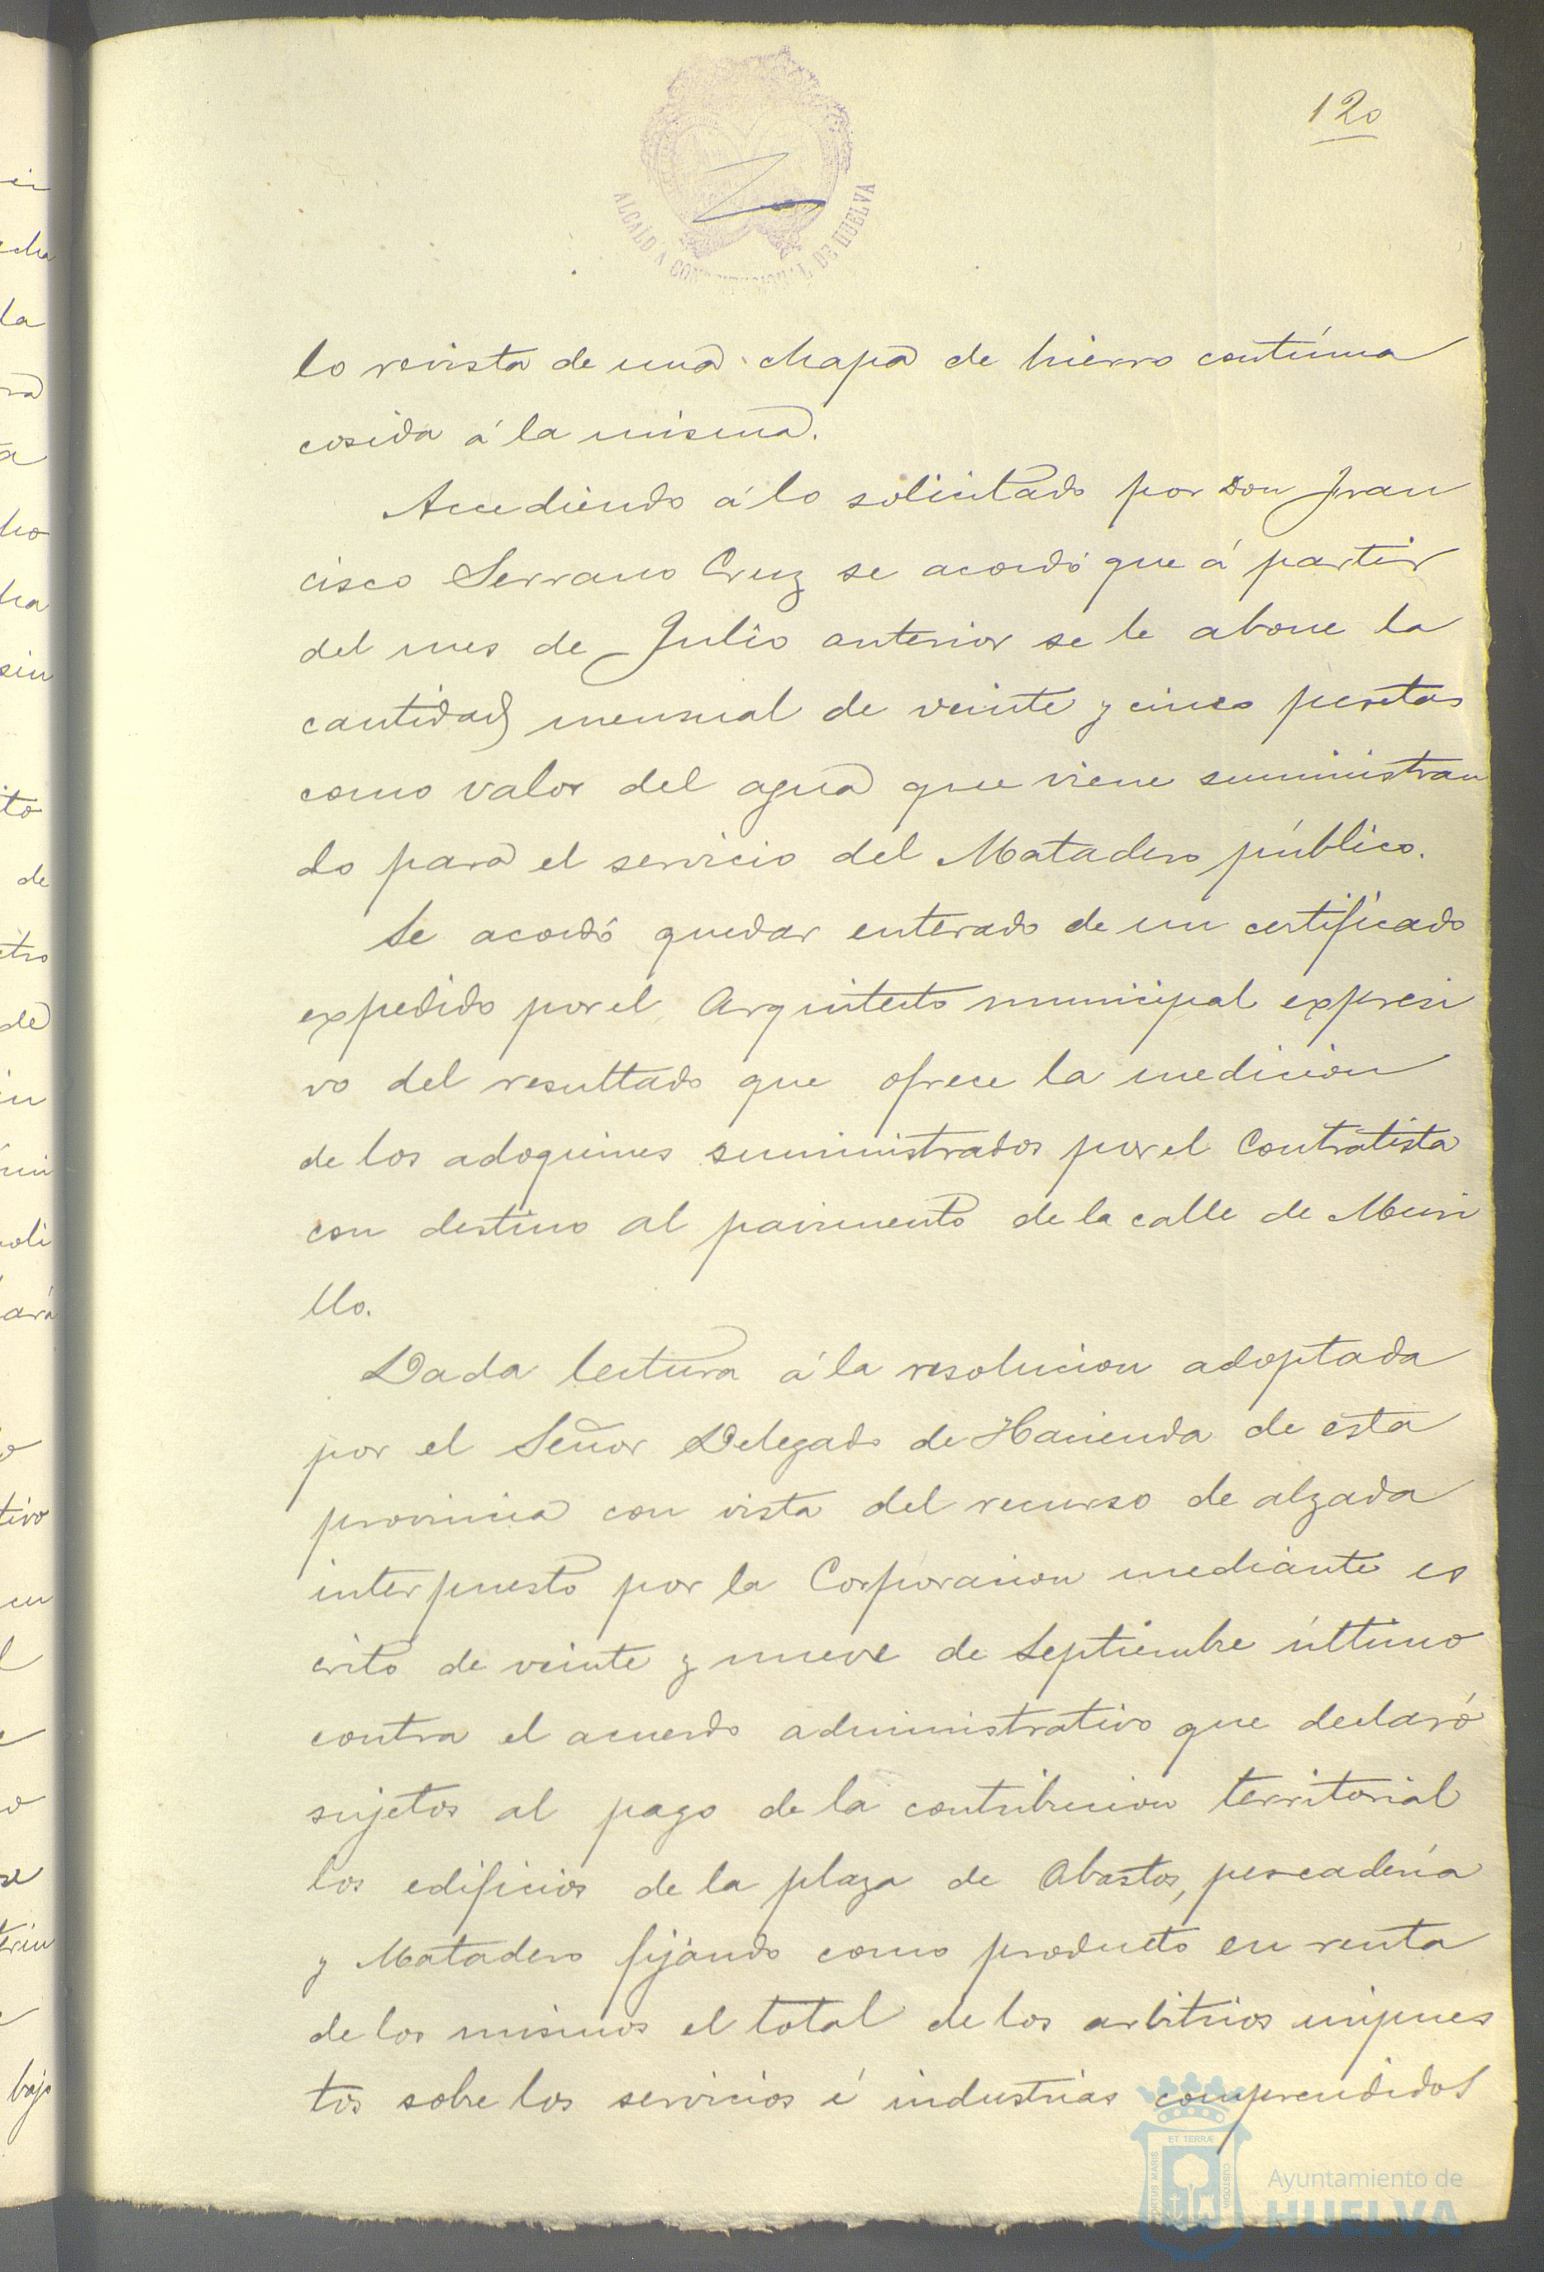 120
ALCALDIA CONSTITUCIONAL DE HUELVA
lo revista de una chapa de hierro contínua
cosida á la misma.
Accediendo á lo solicitado por Don Fran
cisco Serrano Cruz se acordó que á partir
del mes de Julio anterior se le abone la
cantidad mensual de veinte y cinco pesetas
como valor del agua que viene suministran
do para el servicio del Matadero público.
Se acordó quedar enterado de un certificado
expedido por el Arquitecto municipal expresi
vo del resultado que ofrece la medicion
de los adoquines suministrados por el Contratista
con destino al pavimento de la calle de Muri
llo.
Dada lectura á la resolucion adoptada
por el Señor Delegado de Hacienda de esta
provincia con vista del recurso de alzada
interpuesto por la Corporacion mediante es
crito de veinte y nueve de Septiembre último
contra el acuerdo administrativo que declaró
sujetos al pago de la contribucion territorial
los edificios de la plaza de Abastos, pescadería
y Matadero fijando como producto en renta
de los mismos el total de los arbitrios impues
tos sobre los servicios é industrias comprendidos
ET TERRÆ
PORTUS MARIS
CUSTODIA
Ayuntamiento de
HUELVA